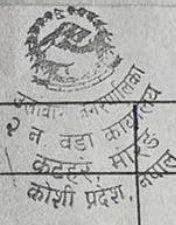 उर्लाबारी नगरपालिका
२ न वडा कार्यालय
कटहरे, मोरङ
कोशी प्रदेश, नेपाल